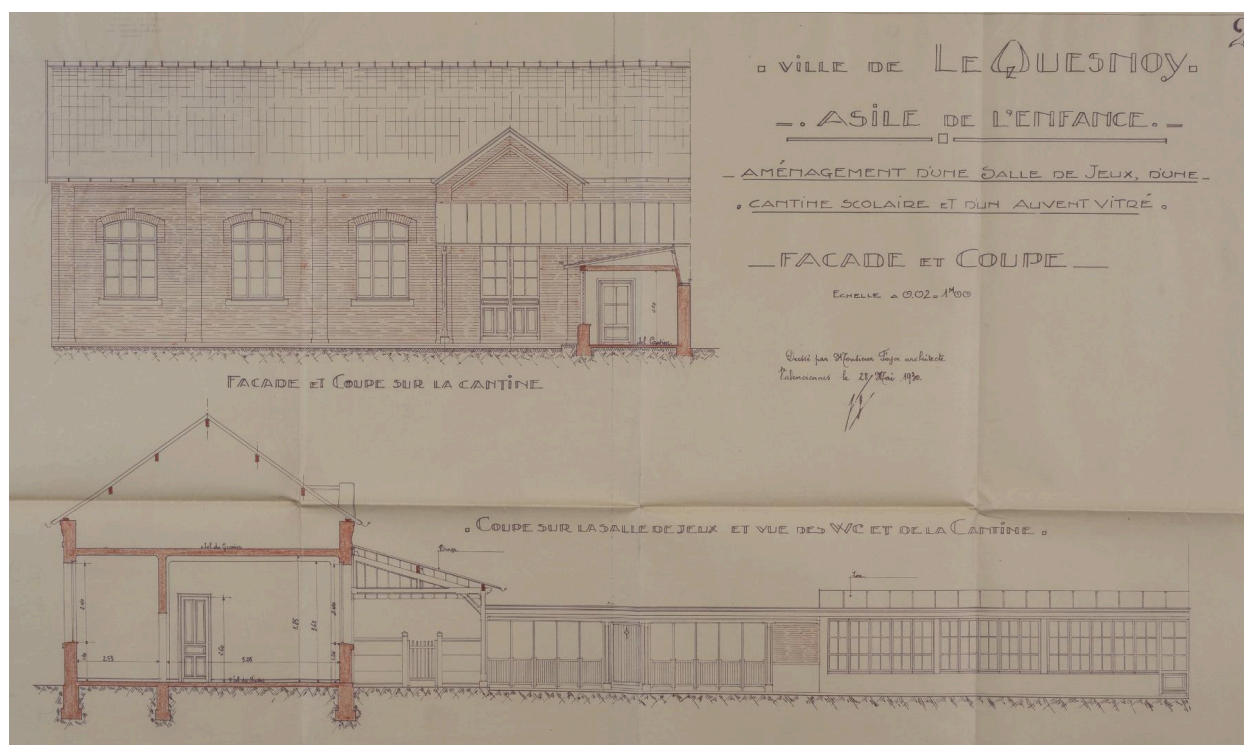 2
. VILLE DE LE QUESNOY.
ASILE DE L'ENFANCE.
AMÉNAGEMENT D'UNE SALLE DE JEUX, D'UNE
CANTINE SCOLAIRE ET D'UN AUVENT VITRÉ.
FACADE ET COUPE
ECHELLE A 0.02 = 1M00
Dressé par Monsieur architecte
Valenciennes le 28 Mai 1930.
FACADE ET COUPE SUR LA CANTINE
. COUPE SUR LA SALLE DE JEUX ET VUE DES WC ET DE LA CANTINE .
Sol du Grenier
2.53
5.08